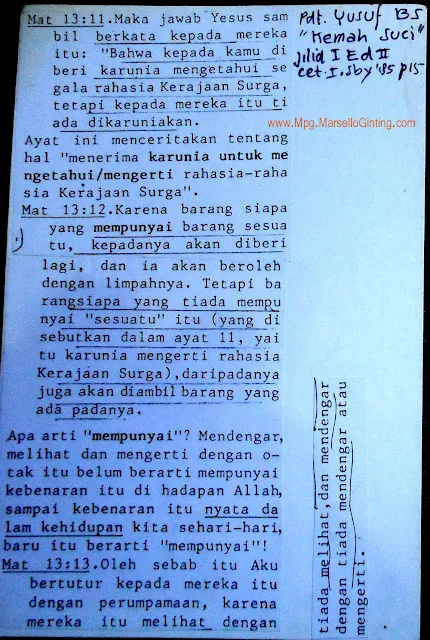 Mat 13:11.Maka jawab Yesus sam
bil berkata kepada mereka
itu: "Bahwa kepada kamu di
beri karunia mengetahui se
gala rahasia Kerajaan Surga,
tetapi kepada mereka itu ti
ada dikaruniakan.
Ayat ini menceritakan tentang
hal "menerima karunia untuk me
ngetahui/mengerti rahasia-raha
sia Kerajaan Surga".
Mat 13:12.Karena barang siapa
yang mempunyai barang sesua
tu, kepadanya akan diberi
lagi, dan ia akan beroleh
dengan limpahnya. Tetapi ba
rangsiapa yang tiada mempu
nyai "sesuatu" itu (yang di
sebutkan dalam ayat 11, yai
tu karunia mengerti rahasia
Kerajaan Surga),daripadanya
juga akan diambil barang yang
ada padanya.
Apa arti "mempunyai"? Mendengar,
melihat dan mengerti dengan o-
tak itu belum berarti mempunyai
kebenaran itu di hadapan Allah,
sampai kebenaran itu nyata da
lam kehidupan kita sehari-hari,
baru itu berarti "mempunyai"!
Mat 13:13.Oleh sebab itu Aku
bertutur kepada mereka itu
dengan perumpamaan, karena
mereka itu melihat dengan
tiada melihat,dan mendengar
dengan tiada mendengar atau
mengerti.
Pdt. Yusuf BS
"Kemah Suci"
jilid I Ed II
cet. I. Sby '85 p15
www.Mpg.MarselloGinting.com